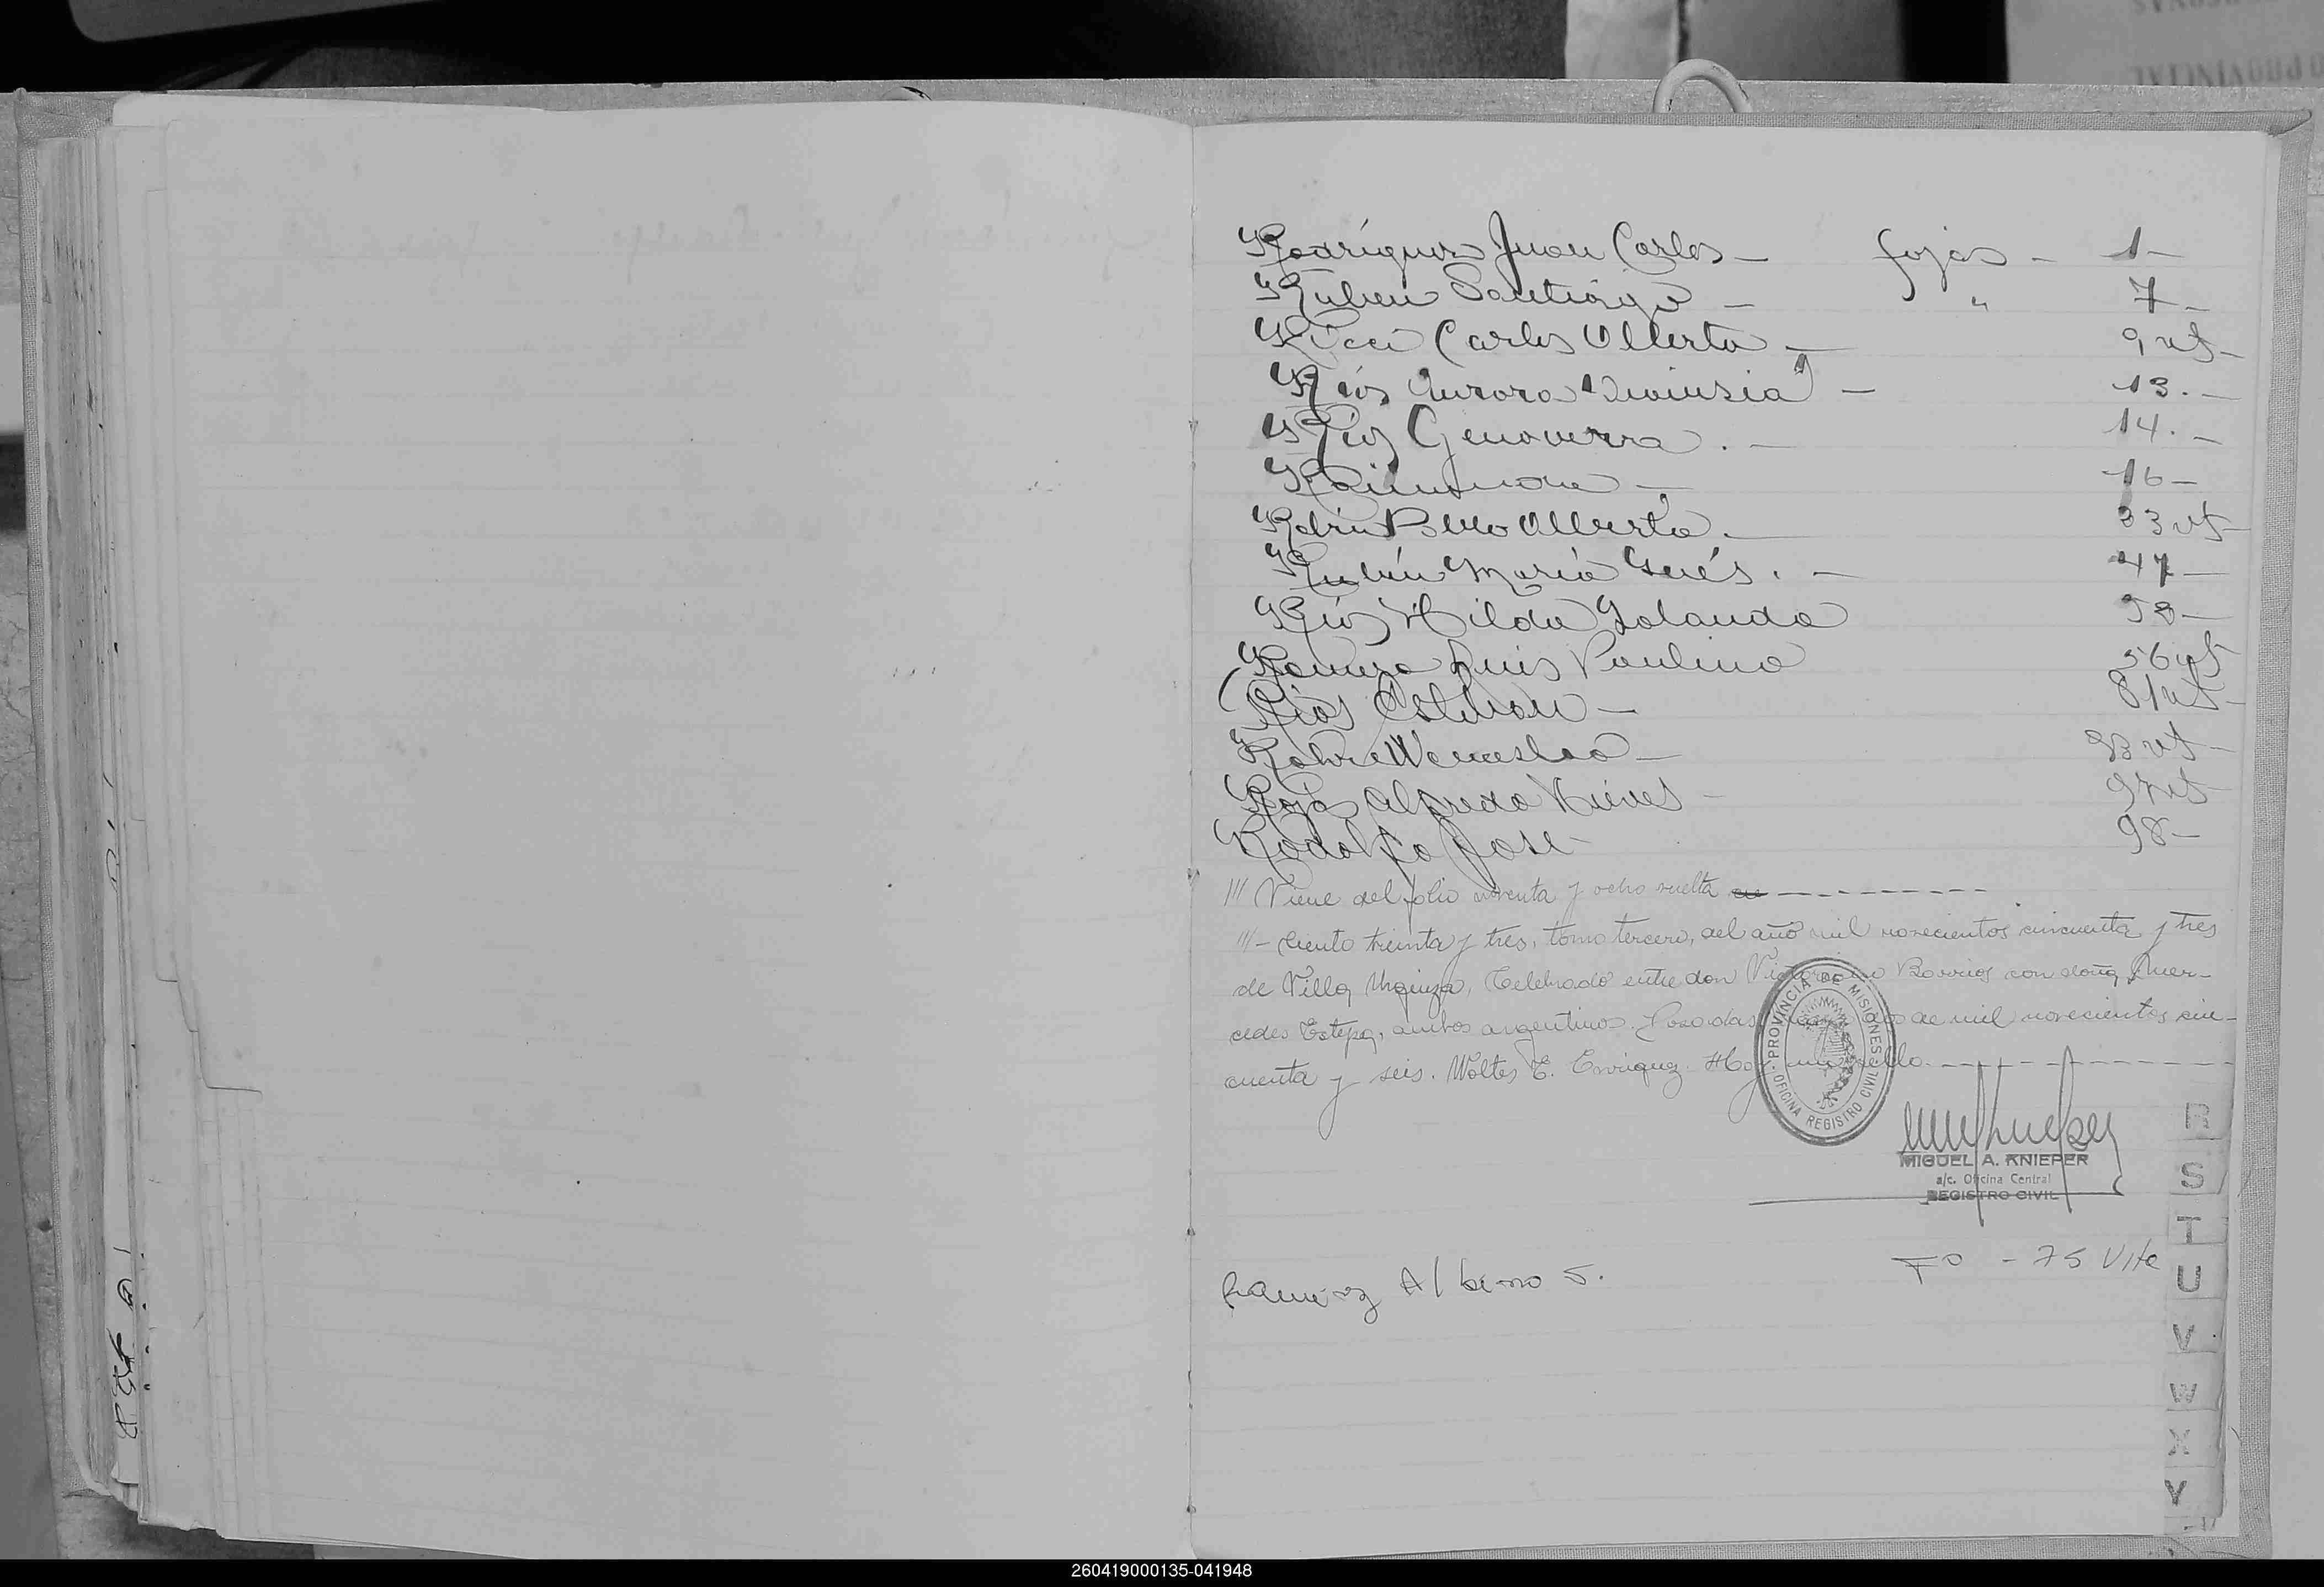 Rodríguez Juan Carlos — fojas - 1 —
Ruben Santiago — " 7 —
Ricci Carlos Alberto — 9 vt —
Ríos Aurora — 13. —
Ríos Genoveva . — 14. —
16 —
Pablo Alberto. — 33 vt —
Rubén María Inés. — 47 —
Ríos Hilda Yolanda 53 —
Luis Paulino 56 vt
Ríos Esteban — 81 vt —
Wenceslao — 93 vt —
Rojas Alfredo Nieves — 97 vt
Rodolfo José - 98 —
/// Viene del folio noventa y ocho vuelta
///- Ciento treinta y tres, tomo tercero, del año mil novecientos cincuenta y tres
de Villa Urquiza, Celebrado entre don Victoriano Barrios con doña Mer-
cedes Estepa, ambos argentinos. Posadas, de mil novecientos cin-
cuenta y seis. Walter E. Enriquez. Hay un sello.
PROVINCIA DE MISIONES
OFICINA REGISTRO CIVIL
MIGUEL A. KNIEPER
a/c. Oficina Central
REGISTRO CIVIL
Ramirez Albino S. Fº - 75 Vlta
R
S
T
U
V
W
X
Y
260419000135-041948